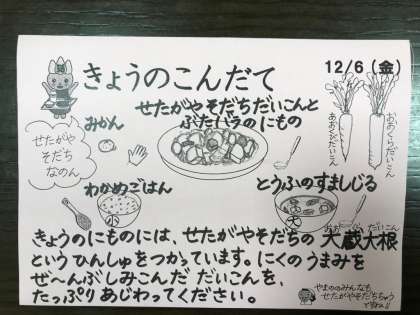 きょうのこんだて
12/6(金)
せたがやそだちだいこんと
ぶたバラのにもの
みかん
せたがや
そだち
なのん
あおくびだいこん
おおくらだいこん
わかめごはん
とうふのすましじる
小
大
おおくらだいこん
きょうのにものには、せたがやそだちの大蔵大根
というひんしゅをつかっています。にくのうまみを
ぜ〜んぶしみこんだ だいこんを、
たっぷりあじわってください。
やまののみんなも
せたがやそだちちゅう